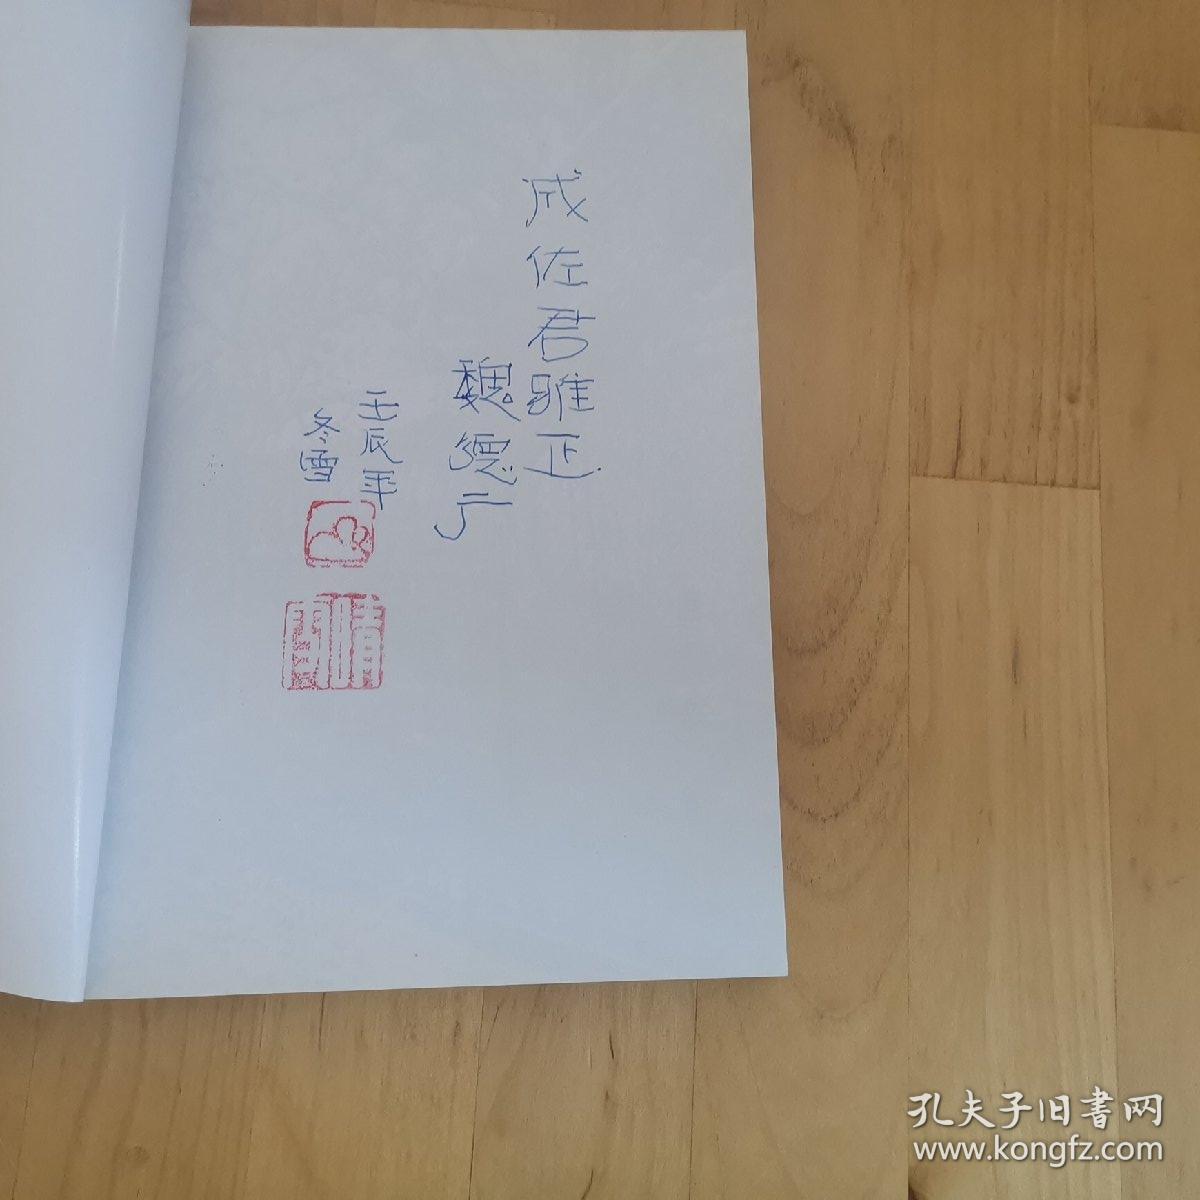 成佐君雅正
魏德广
壬辰年
冬雪
孔夫子旧书网
www.kongfz.com